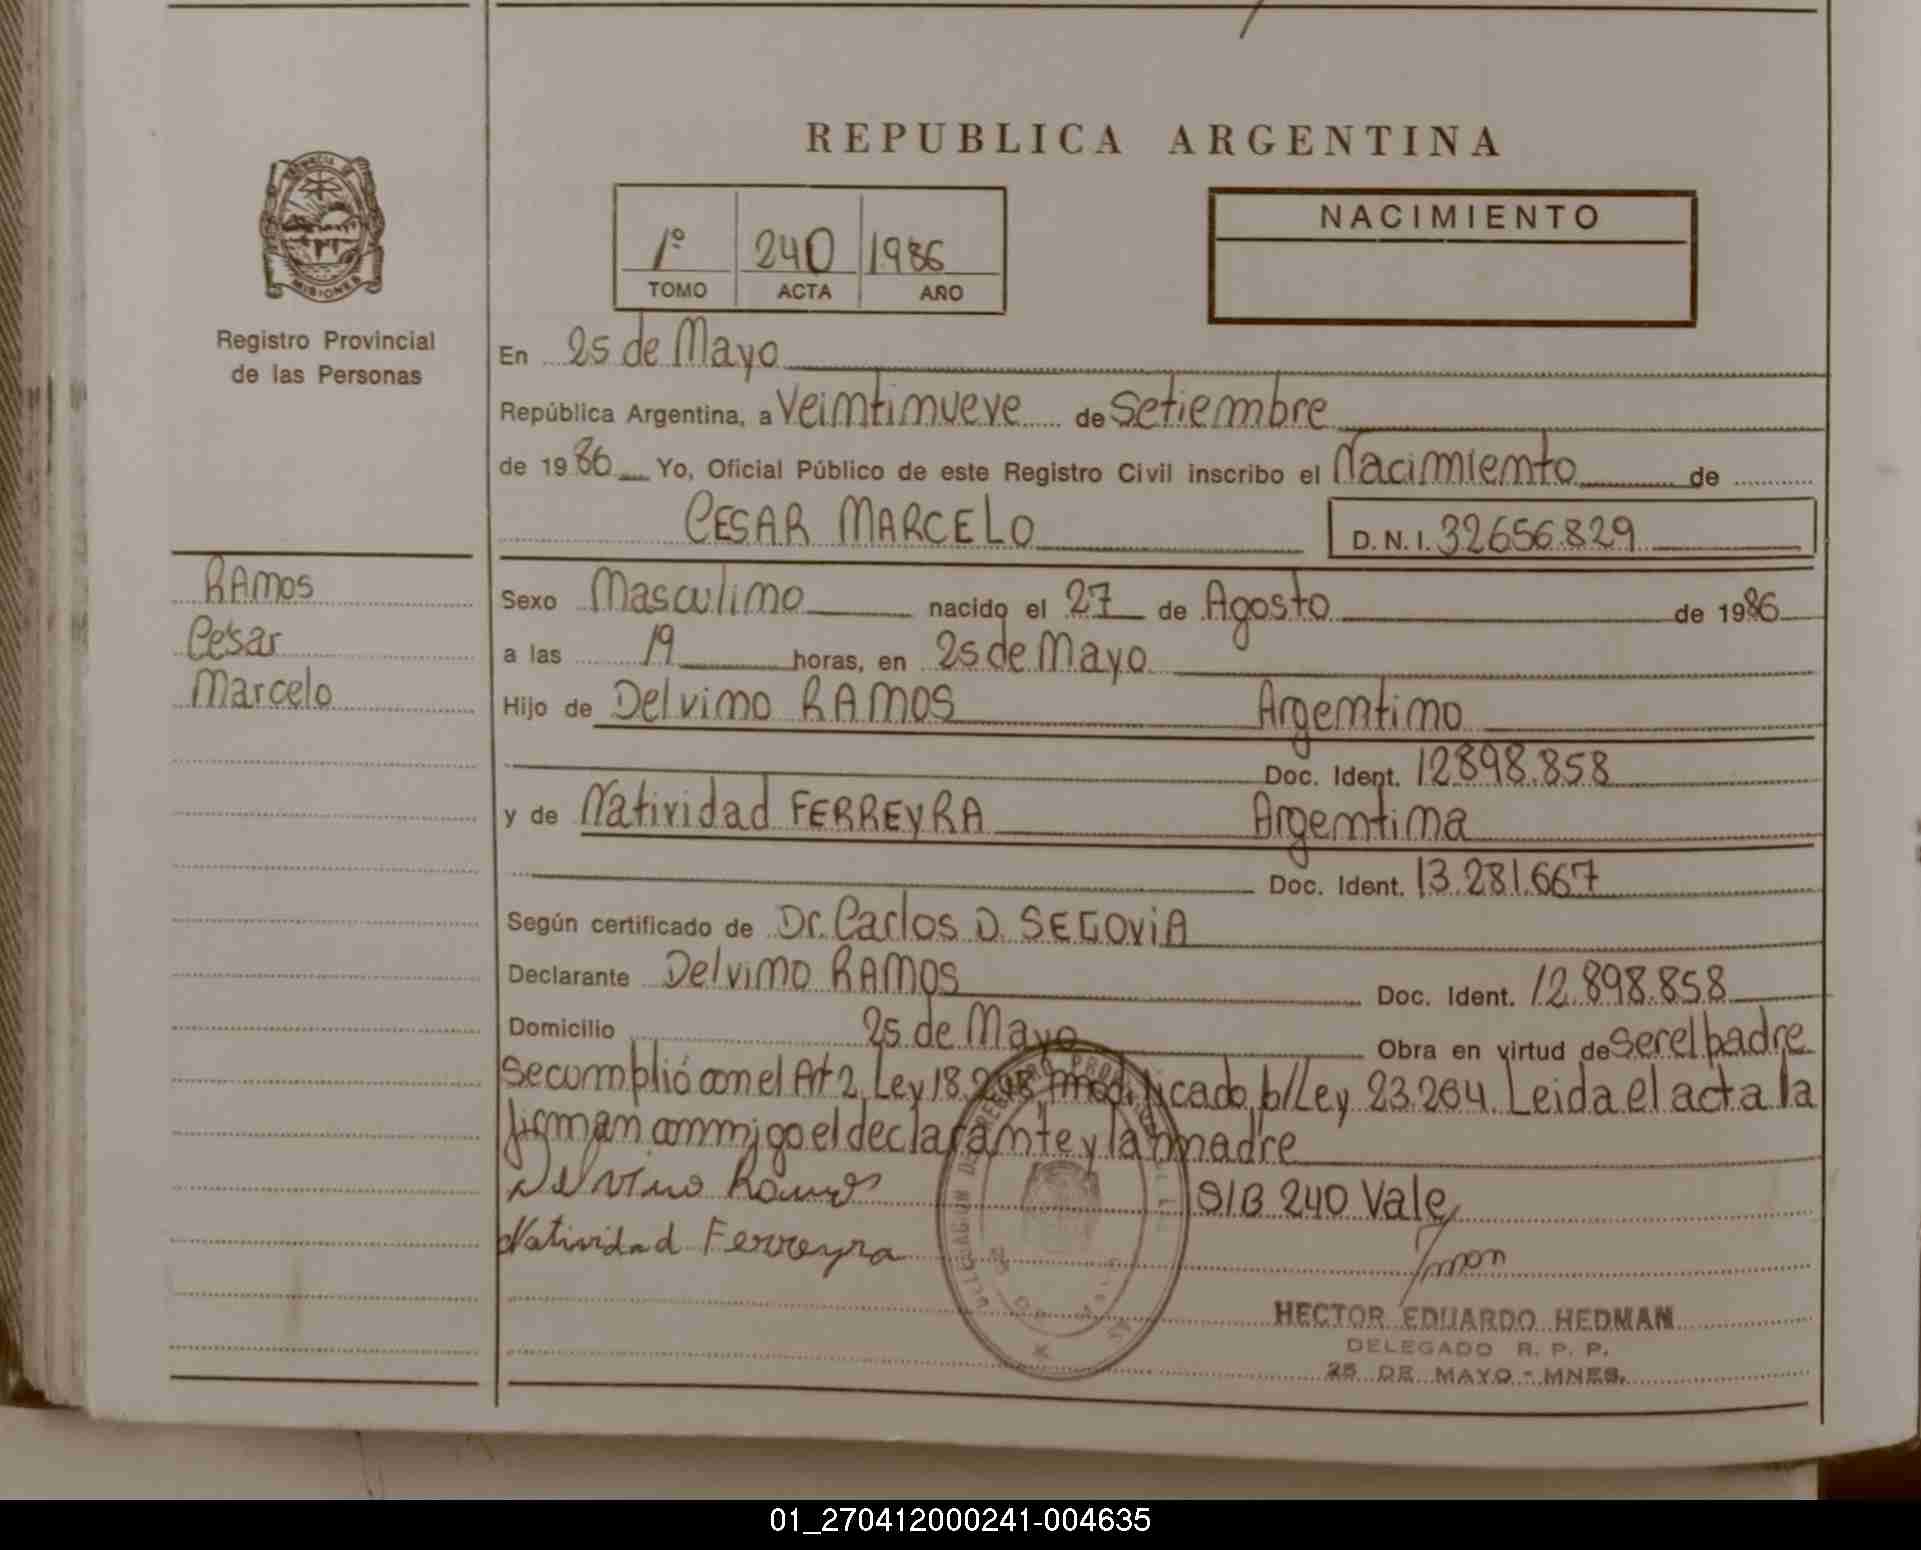 REPUBLICA ARGENTINA
PROVINCIA DE
MISIONES
Registro Provincial
de las Personas
1º 240 1986
TOMO ACTA AÑO
NACIMIENTO
En 25 de Mayo
República Argentina, a Veintinueve de Setiembre
de 1986 Yo, Oficial Público de este Registro Civil inscribo el Nacimiento de
CESAR MARCELO D.N.I. 32656.829
RAMOS
Cesar
Marcelo
Sexo Masculino nacido el 27 de Agosto de 1986
a las 19 horas, en 25 de Mayo
Hijo de Delvino RAMOS Argentino
Doc. Ident. 12898.858
y de Natividad FERREYRA Argentina
Doc. Ident. 13.281.667
Según certificado de Dr. Carlos D. SEGOVIA
Declarante Delvino RAMOS Doc. Ident. 12.898.858
Domicilio 25 de Mayo Obra en virtud de ser el padre
Se cumplió con el Art 2, Ley 18.248, modificado, p/Ley 23.264. Leida el acta la
firman conmigo el declarante y la madre
Delvino Ramos S/B 240 Vale
Natividad Ferreyra
HECTOR EDUARDO HEDMAN
DELEGADO R. P. P.
25 DE MAYO - MNES.
01_270412000241-004635